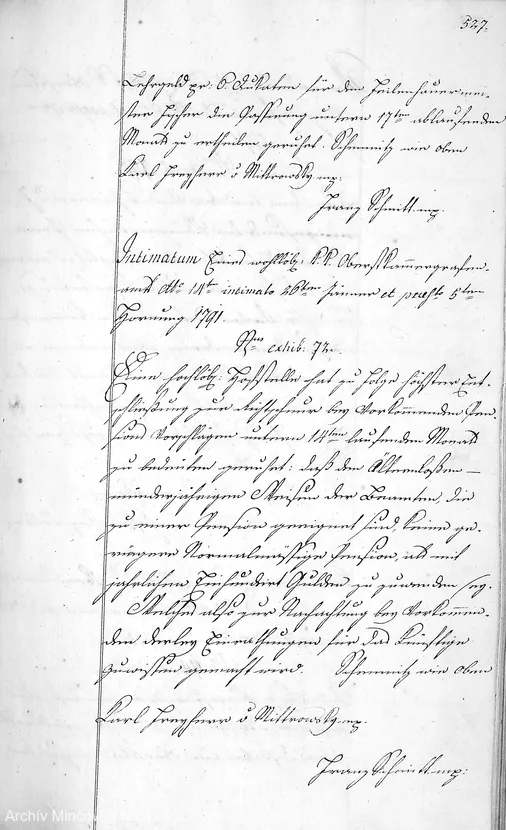 527.
Lehrgeld pr: 6. Dukaten für den Feilenhauermei-
ster Fischer die Passirung untern 17ten ablaufenden
Monats zu ertheilen geruhet. Schemnitz wie oben
Karl Freyherr v Mittrowsky mp.
Franz Schmitt mp.
Intimatum Eines wohllöbl. k.k. Oberstkammergrafen-
amts ddto 14ten intimato 26ten Jänner et praesto 5ten
Hornung 1791.
Nrus exhib: 72.
Eine hochlöbl: Hofstelle hat zu folge höchster Ent-
schließung zur Richtschnur bey vorkommenden Pen-
sions Vorschlägen untern 14ten laufenden Monats
zu bedeuten geruhet: daß den Älternloßen —
minderjährigen Waisen der Beamten, die
zu einer Pension geeignet sind, keine ge-
ringere Normalmässige Pension, als mit
jährlichen Gulden zu zuwenden sey.
Welches also zur Nachachtung bey vorkommen-
den derley Einrathungen für das künftige
zuwissen gemacht wird. Schemnitz wie oben
Karl Freyherr v Mittrowsky mp.
Franz Schmitt mp:
Archív Mincovne Kremnica